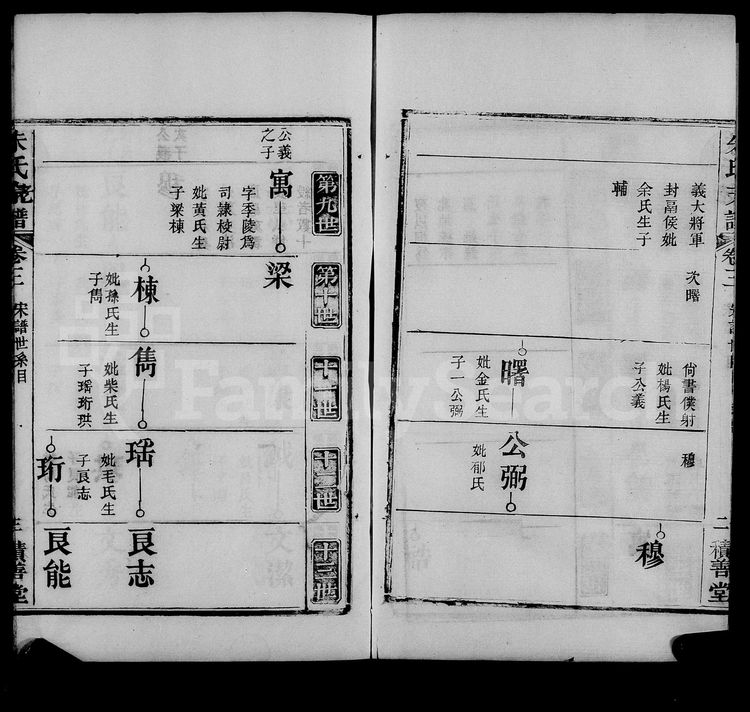 義大將軍
封鬲侯妣
余氏生子
輔
次曙
尙書僕射
妣楊氏生
子公義
穆
曙
妣金氏生
子一公弼
公弼
妣郁氏
穆
二
積善堂
第九世
第十世
十一世
十二世
十三世
公義
之子
寓
字季陵爲
司隸校尉
妣黃氏生
子梁棟
梁
棟
妣孫氏生
子雋
雋
妣柴氏生
子瑶珩珙
瑶
妣毛氏生
子良志
良志
珩
良能
朱氏
譜
卷三
宋譜世系目
三
積善堂
FamilySearch